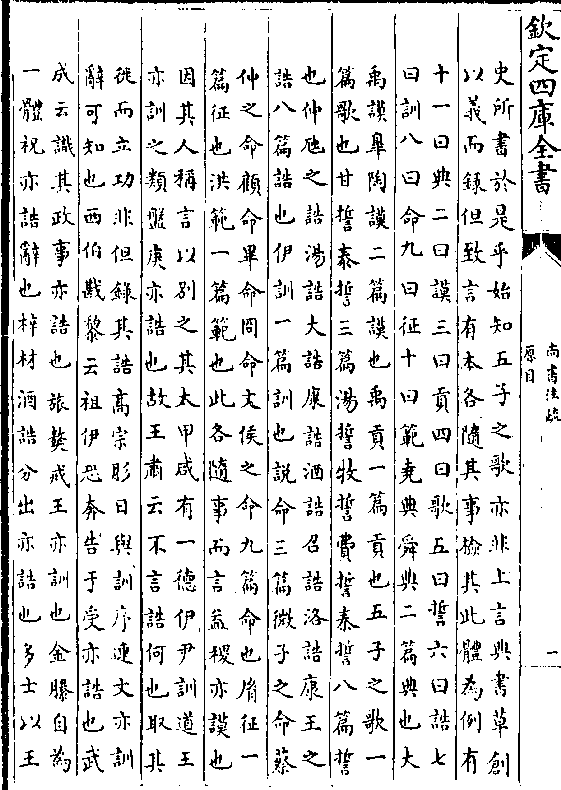 欽定四庫全書
尚書注疏
原目
一
史所書於是乎始知五子之歌亦非上言典書草創
以義而錄但致言有本各隨其事檢其此體為例有
十一曰典二曰謨三曰貢四曰歌五曰誓六曰誥七
曰訓八曰命九曰征十曰範堯典舜典二篇典也大
禹謨皐陶謨二篇謨也禹貢一篇貢也五子之歌一
篇歌也甘誓泰誓三篇湯誓牧誓費誓秦誓八篇誓
也仲虺之誥湯誥大誥康誥酒誥召誥洛誥康王之
誥八篇誥也伊訓一篇訓也說命三篇微子之命蔡
仲之命顧命畢命冏命文侯之命九篇命也胤征一
篇征也洪範一篇範也此各隨事而言益稷亦謨也
因其人稱言以別之其太甲咸有一德伊尹訓道王
亦訓之類盤庚亦誥也故王肅云不言誥何也取其
徙而立功非但錄其誥高宗肜日與訓序連文亦訓
辭可知也西伯戡黎云祖伊恐奔告于受亦誥也武
成云識其政事亦誥也旅獒戒王亦訓也金縢自為
一體祝亦誥辭也梓材酒誥分出亦誥也多士以王